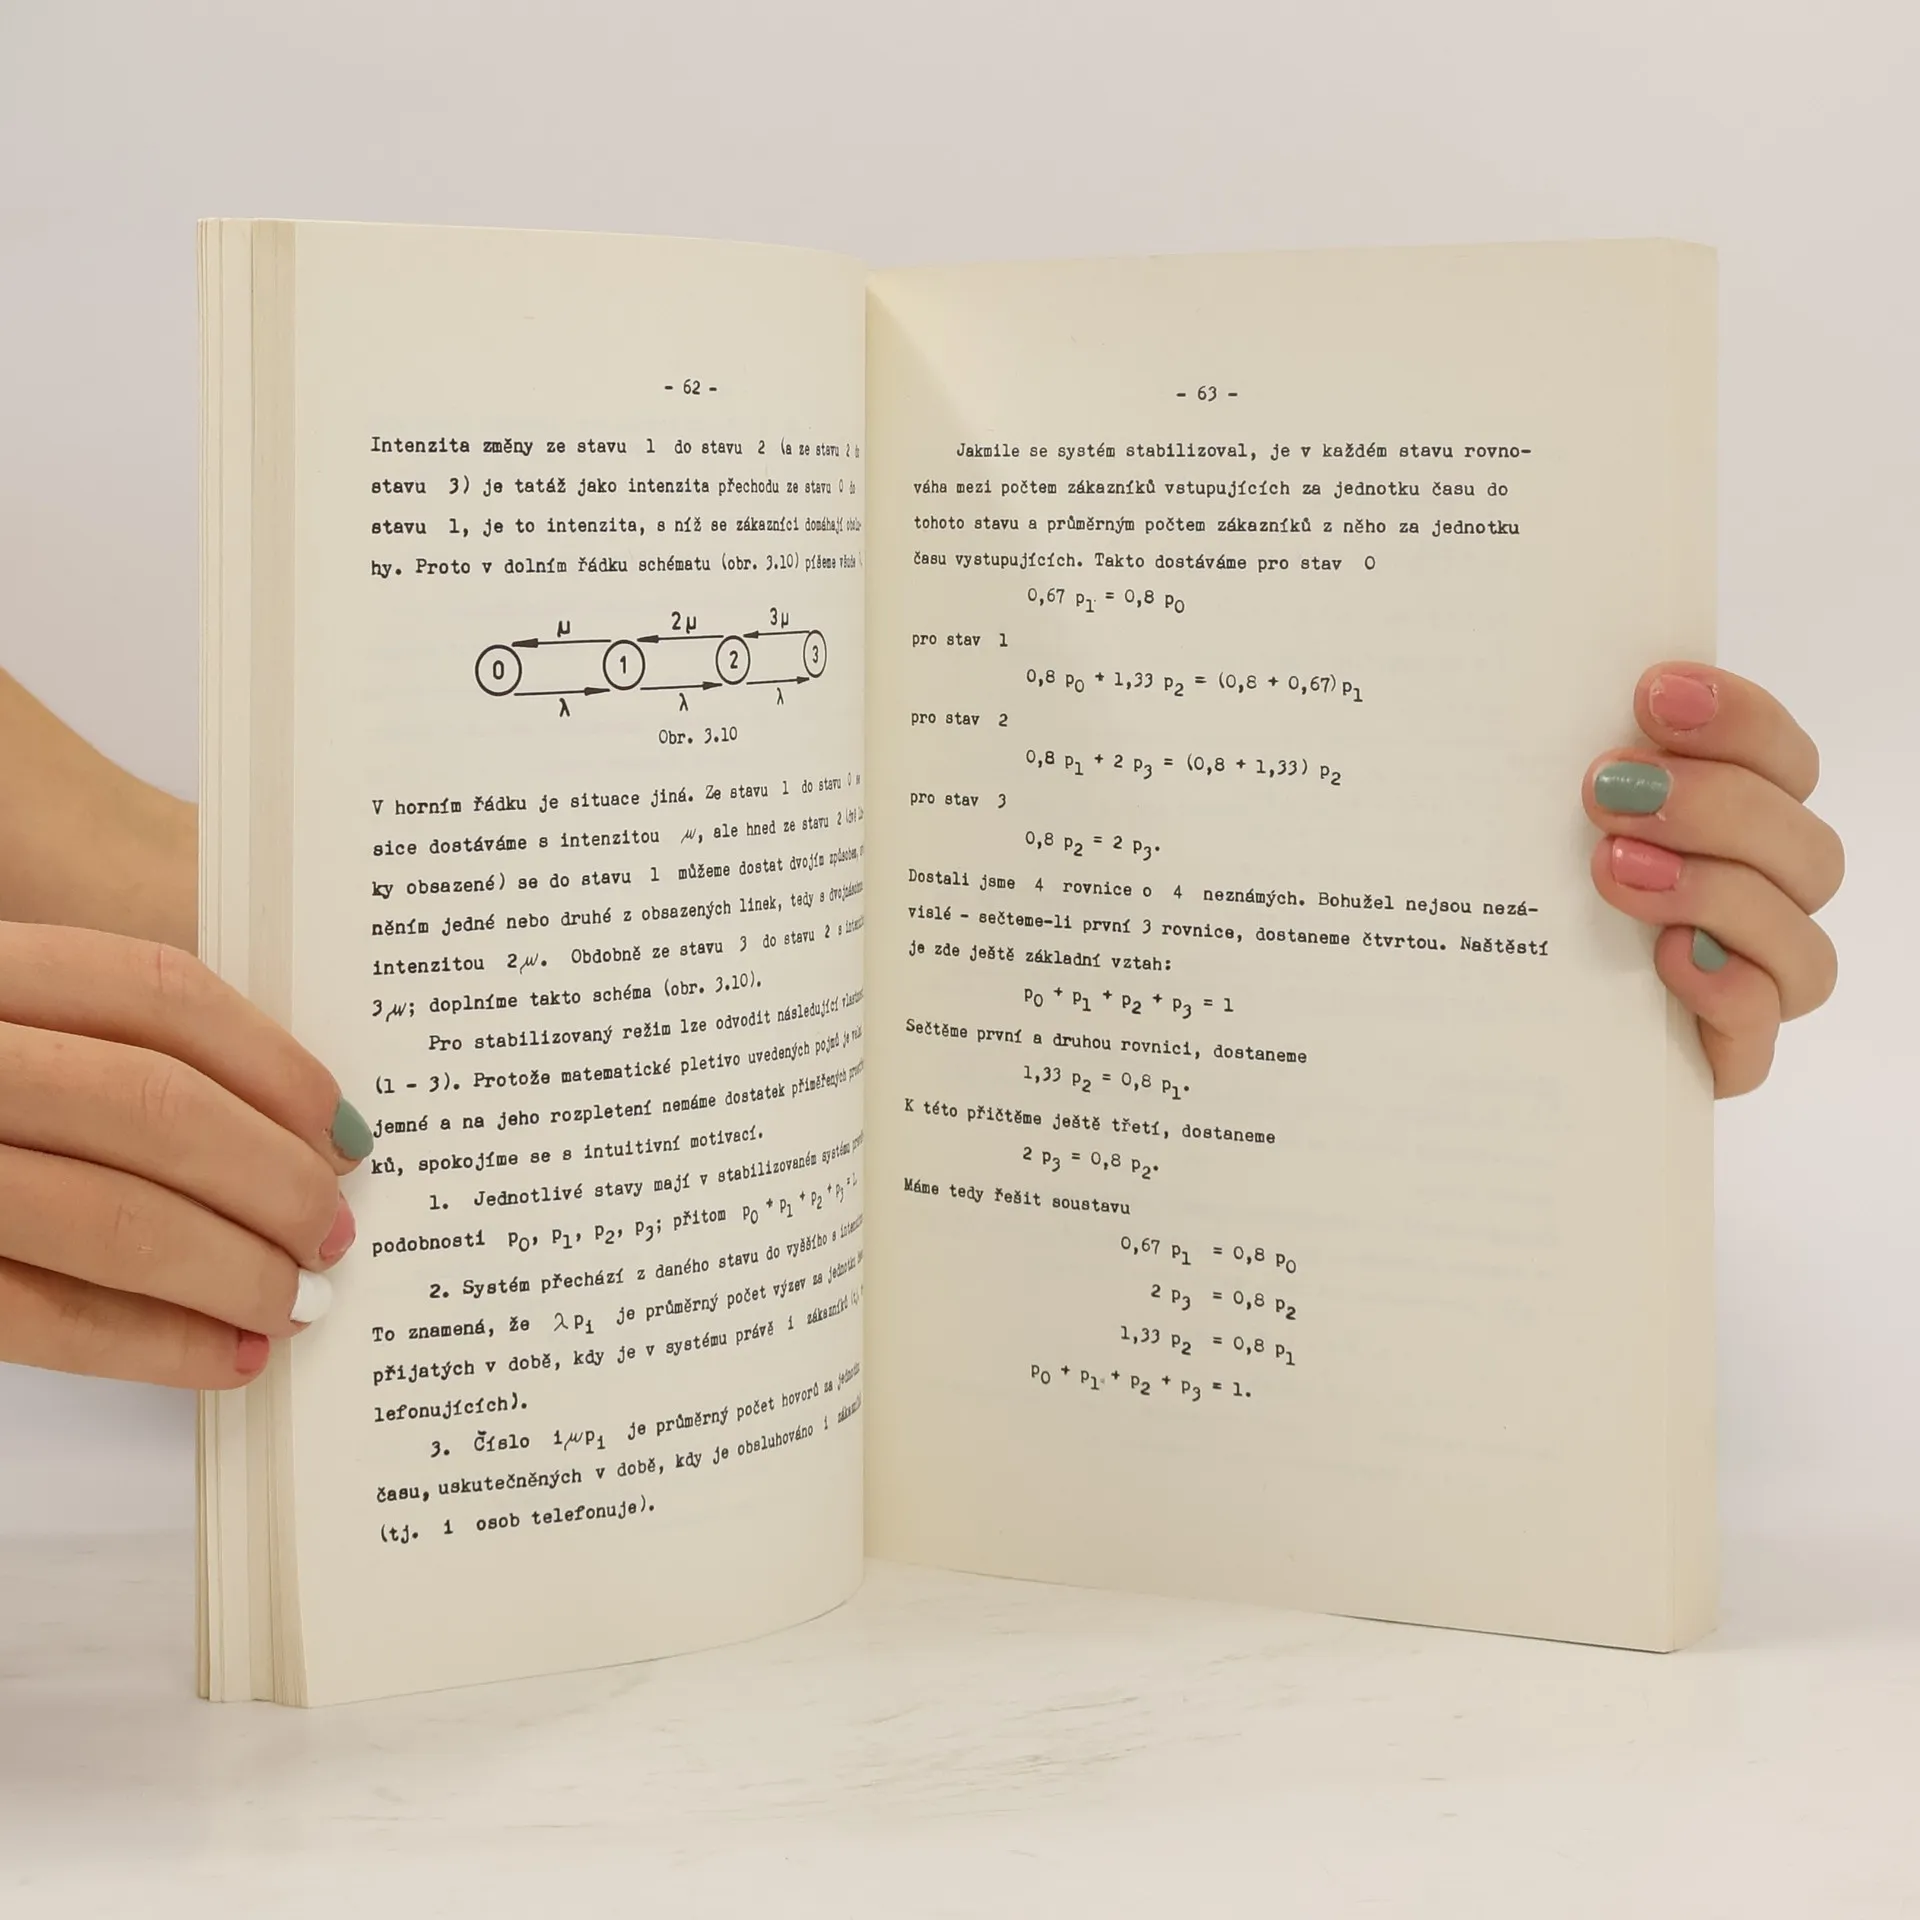 - 62 -
Intenzita změny ze stavu 1 do stavu 2 (a ze stavu 2 do
stavu 3) je tatáž jako intenzita přechodu ze stavu 0 do
stavu 1, je to intenzita, s níž se zákazníci domáhají
hy. Proto v dolním řádku schématu (obr. 3.10) píšeme všude
μ 2μ 3μ
0 1 2 3
λ λ λ
Obr. 3.10
V horním řádku je situace jiná. Ze stavu 1 do stavu 0
sice dostáváme s intenzitou μ, ale hned ze stavu 2
ky obsazené) se do stavu 1 můžeme dostat dvojím způsobem,
něním jedné nebo druhé z obsazených linek, tedy s
intenzitou 2μ. Obdobně ze stavu 3 do stavu 2 s
3μ; doplníme takto schéma (obr. 3.10).
Pro stabilizovaný režim lze odvodit následující
(1 - 3). Protože matematické pletivo uvedených pojmů je
jemné a na jeho rozpletení nemáme dostatek přiměřených
ků, spokojíme se s intuitivní motivací.
1. Jednotlivé stavy mají v stabilizovaném systému
podobnosti p0, p1, p2, p3; přitom p0 + p1 + p2 + p3 = 1.
2. Systém přechází z daného stavu do vyššího s
To znamená, že λpi je průměrný počet výzev za jednotku
přijatých v době, kdy je v systému právě i zákazníků
lefonujících).
3. Číslo iμpi je průměrný počet hovorů za jednotku
času, uskutečněných v době, kdy je obsluhováno i
(tj. i osob telefonuje).
- 63 -
Jakmile se systém stabilizoval, je v každém stavu rovno-
váha mezi počtem zákazníků vstupujících za jednotku času do
tohoto stavu a průměrným počtem zákazníků z něho za jednotku
času vystupujících. Takto dostáváme pro stav 0
0,67 p1 = 0,8 p0
pro stav 1
0,8 p0 + 1,33 p2 = (0,8 + 0,67) p1
pro stav 2
0,8 p1 + 2 p3 = (0,8 + 1,33) p2
pro stav 3
0,8 p2 = 2 p3.
Dostali jsme 4 rovnice o 4 neznámých. Bohužel nejsou nezá-
vislé - sečteme-li první 3 rovnice, dostaneme čtvrtou. Naštěstí
je zde ještě základní vztah:
p0 + p1 + p2 + p3 = 1
Sečtěme první a druhou rovnici, dostaneme
1,33 p2 = 0,8 p1.
K této přičtěme ještě třetí, dostaneme
2 p3 = 0,8 p2.
Máme tedy řešit soustavu
0,67 p1 = 0,8 p0
2 p3 = 0,8 p2
1,33 p2 = 0,8 p1
p0 + p1 + p2 + p3 = 1.